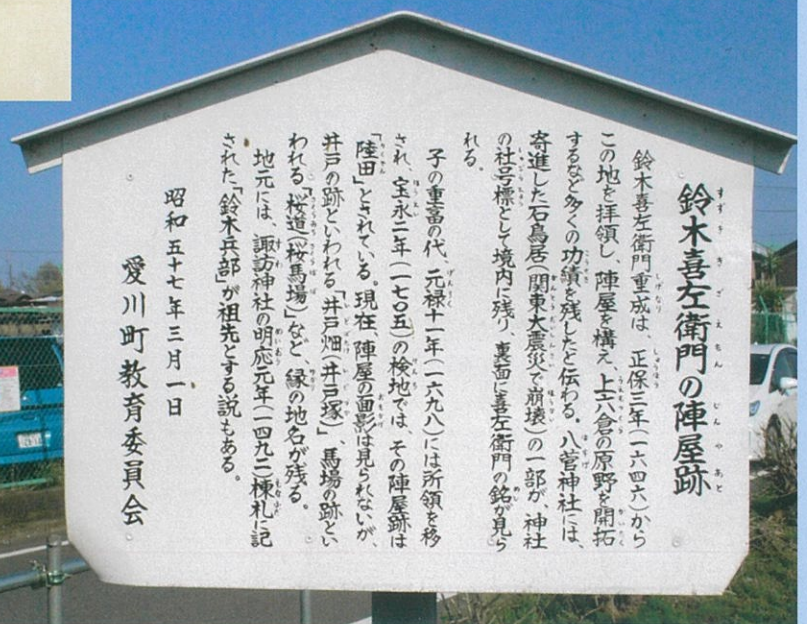 鈴木喜左衛門の陣屋跡
鈴木喜左衛門重成は、正保三年(一六四六)から
この地を拝領し、陣屋を構え、上六倉の原野を開拓
するなど多くの功績を残したと伝わる。八菅神社には、
寄進した石鳥居(関東大震災で崩壊)の一部が、神社
の社号標として境内に残り、裏面に喜左衛門の銘が見ら
れる。
子の重富の代、元禄十一年(一六九八)には所領を移
され、宝永二年(一七〇五)の検地では、その陣屋跡は
「陸田」とされている。現在、陣屋の面影は見られないが、
井戸の跡といわれる「井戸畑(井戸塚)」、馬場の跡とい
われる「桜道(桜馬場)」など、縁の地名が残る。
地元には、諏訪神社の明応元年(一四九二)棟札に記
された「鈴木兵部」が祖先とする説もある。
昭和五十七年三月一日
愛川町教育委員会